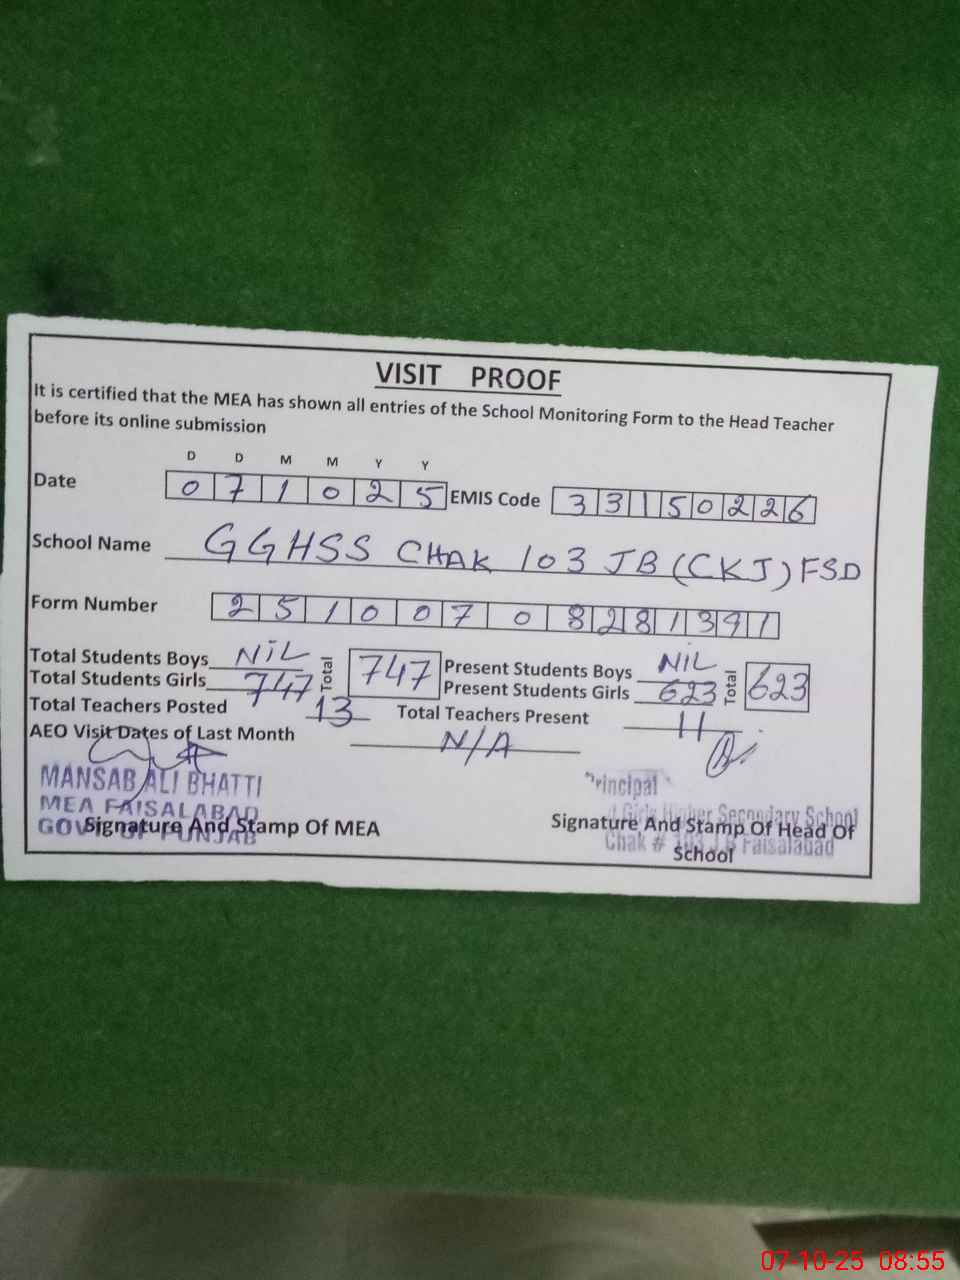 VISIT PROOF
It is certified that the MEA has shown all entries of the School Monitoring Form to the Head Teacher
before its online submission
D D M M Y Y
Date 0 7 1 0 2 5 EMIS Code 3 3 1 5 0 2 2 6
School Name GGHSS CHAK 103 JB (CKJ) FSD
Form Number 2 5 1 0 0 7 0 8 2 8 1 3 9 1
Total Students Boys NIL Total 747 Present Students Boys NIL Total 623
Total Students Girls 747 Present Students Girls 623
Total Teachers Posted 13 Total Teachers Present 11
AEO Visit Dates of Last Month N/A
MANSAB ALI BHATTI Principal
MEA FAISALABAD Girls Higher Secondary School
GOVT OF PUNJAB Chak # 103 J.B Faisalabad
Signature And Stamp Of MEA Signature And Stamp Of Head Of
School
07-10-25 08:55